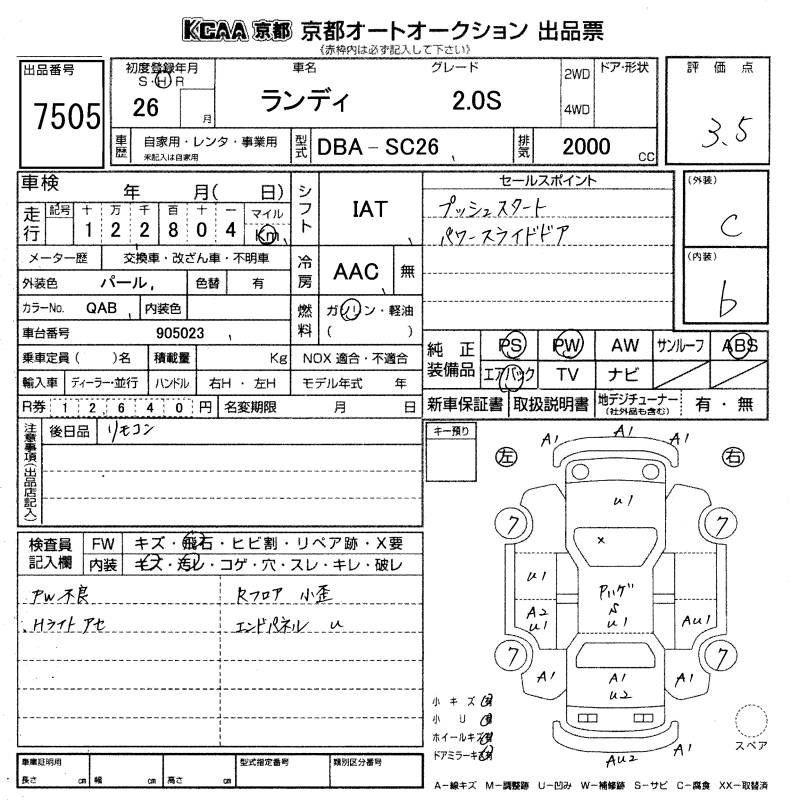 KCAA 京都 京都オートオークション 出品票
《赤枠内は必ず記入して下さい》
出品番号
7505
初度登録年月
S・H R
26 月
車名 グレード
ランディ 2.0S
2WD
4WD
ドア・形状
評価点
3.5
車歴 自家用・レンタ・事業用
未記入は自家用
型式 DBA-SC26
排気 2000 CC
車検 年 月( 日)
走行 記号 十 万 千 百 十 一 マイル
1 2 2 8 0 4 Km
メーター歴 交換車・改ざん車・不明車
外装色 パール 色替 有
カラーNo. QAB 内装色
車台番号 905023
乗車定員( )名 積載量 Kg NOX 適合・不適合
輸入車 ディーラー・並行 ハンドル 右H・左H モデル年式 年
R券 1 2 6 4 0 円 名変期限 月 日
シフト IAT
冷房 AAC 無
燃料 ガソリン・軽油
( )
セールスポイント
プッシュスタート
パワースライドドア
(外装)
C
(内装)
b
純正装備品 PS PW AW サンルーフ ABS
エアバック TV ナビ
新車保証書 取扱説明書 地デジチューナー
(社外品も含む) 有・無
注意事項(出品店記入)
後日品 リモコン
キー預り
検査員記入欄
FW キズ・飛石・ヒビ割・リペア跡・X要
内装 キズ・汚レ・コゲ・穴・スレ・キレ・破レ
PW不良 Rフロア 小歪
Hライト アセ エンドパネル U
左 右
A1 A1 A1
U1
7 7
X
U1
Pハゲ
S
U1
A2
U1
AU1
7 7
A1 A1
U2
A1 A1
AU2 A1
小キズ 有
小U 有
ホイールキズ 有
ドアミラーキズ 有
スペア
車庫証明用
長さ cm 幅 cm 高さ cm
型式指定番号
類別区分番号
A-線キズ M-調整跡 U-凹み W-補修跡 S-サビ C-腐食 XX-取替済